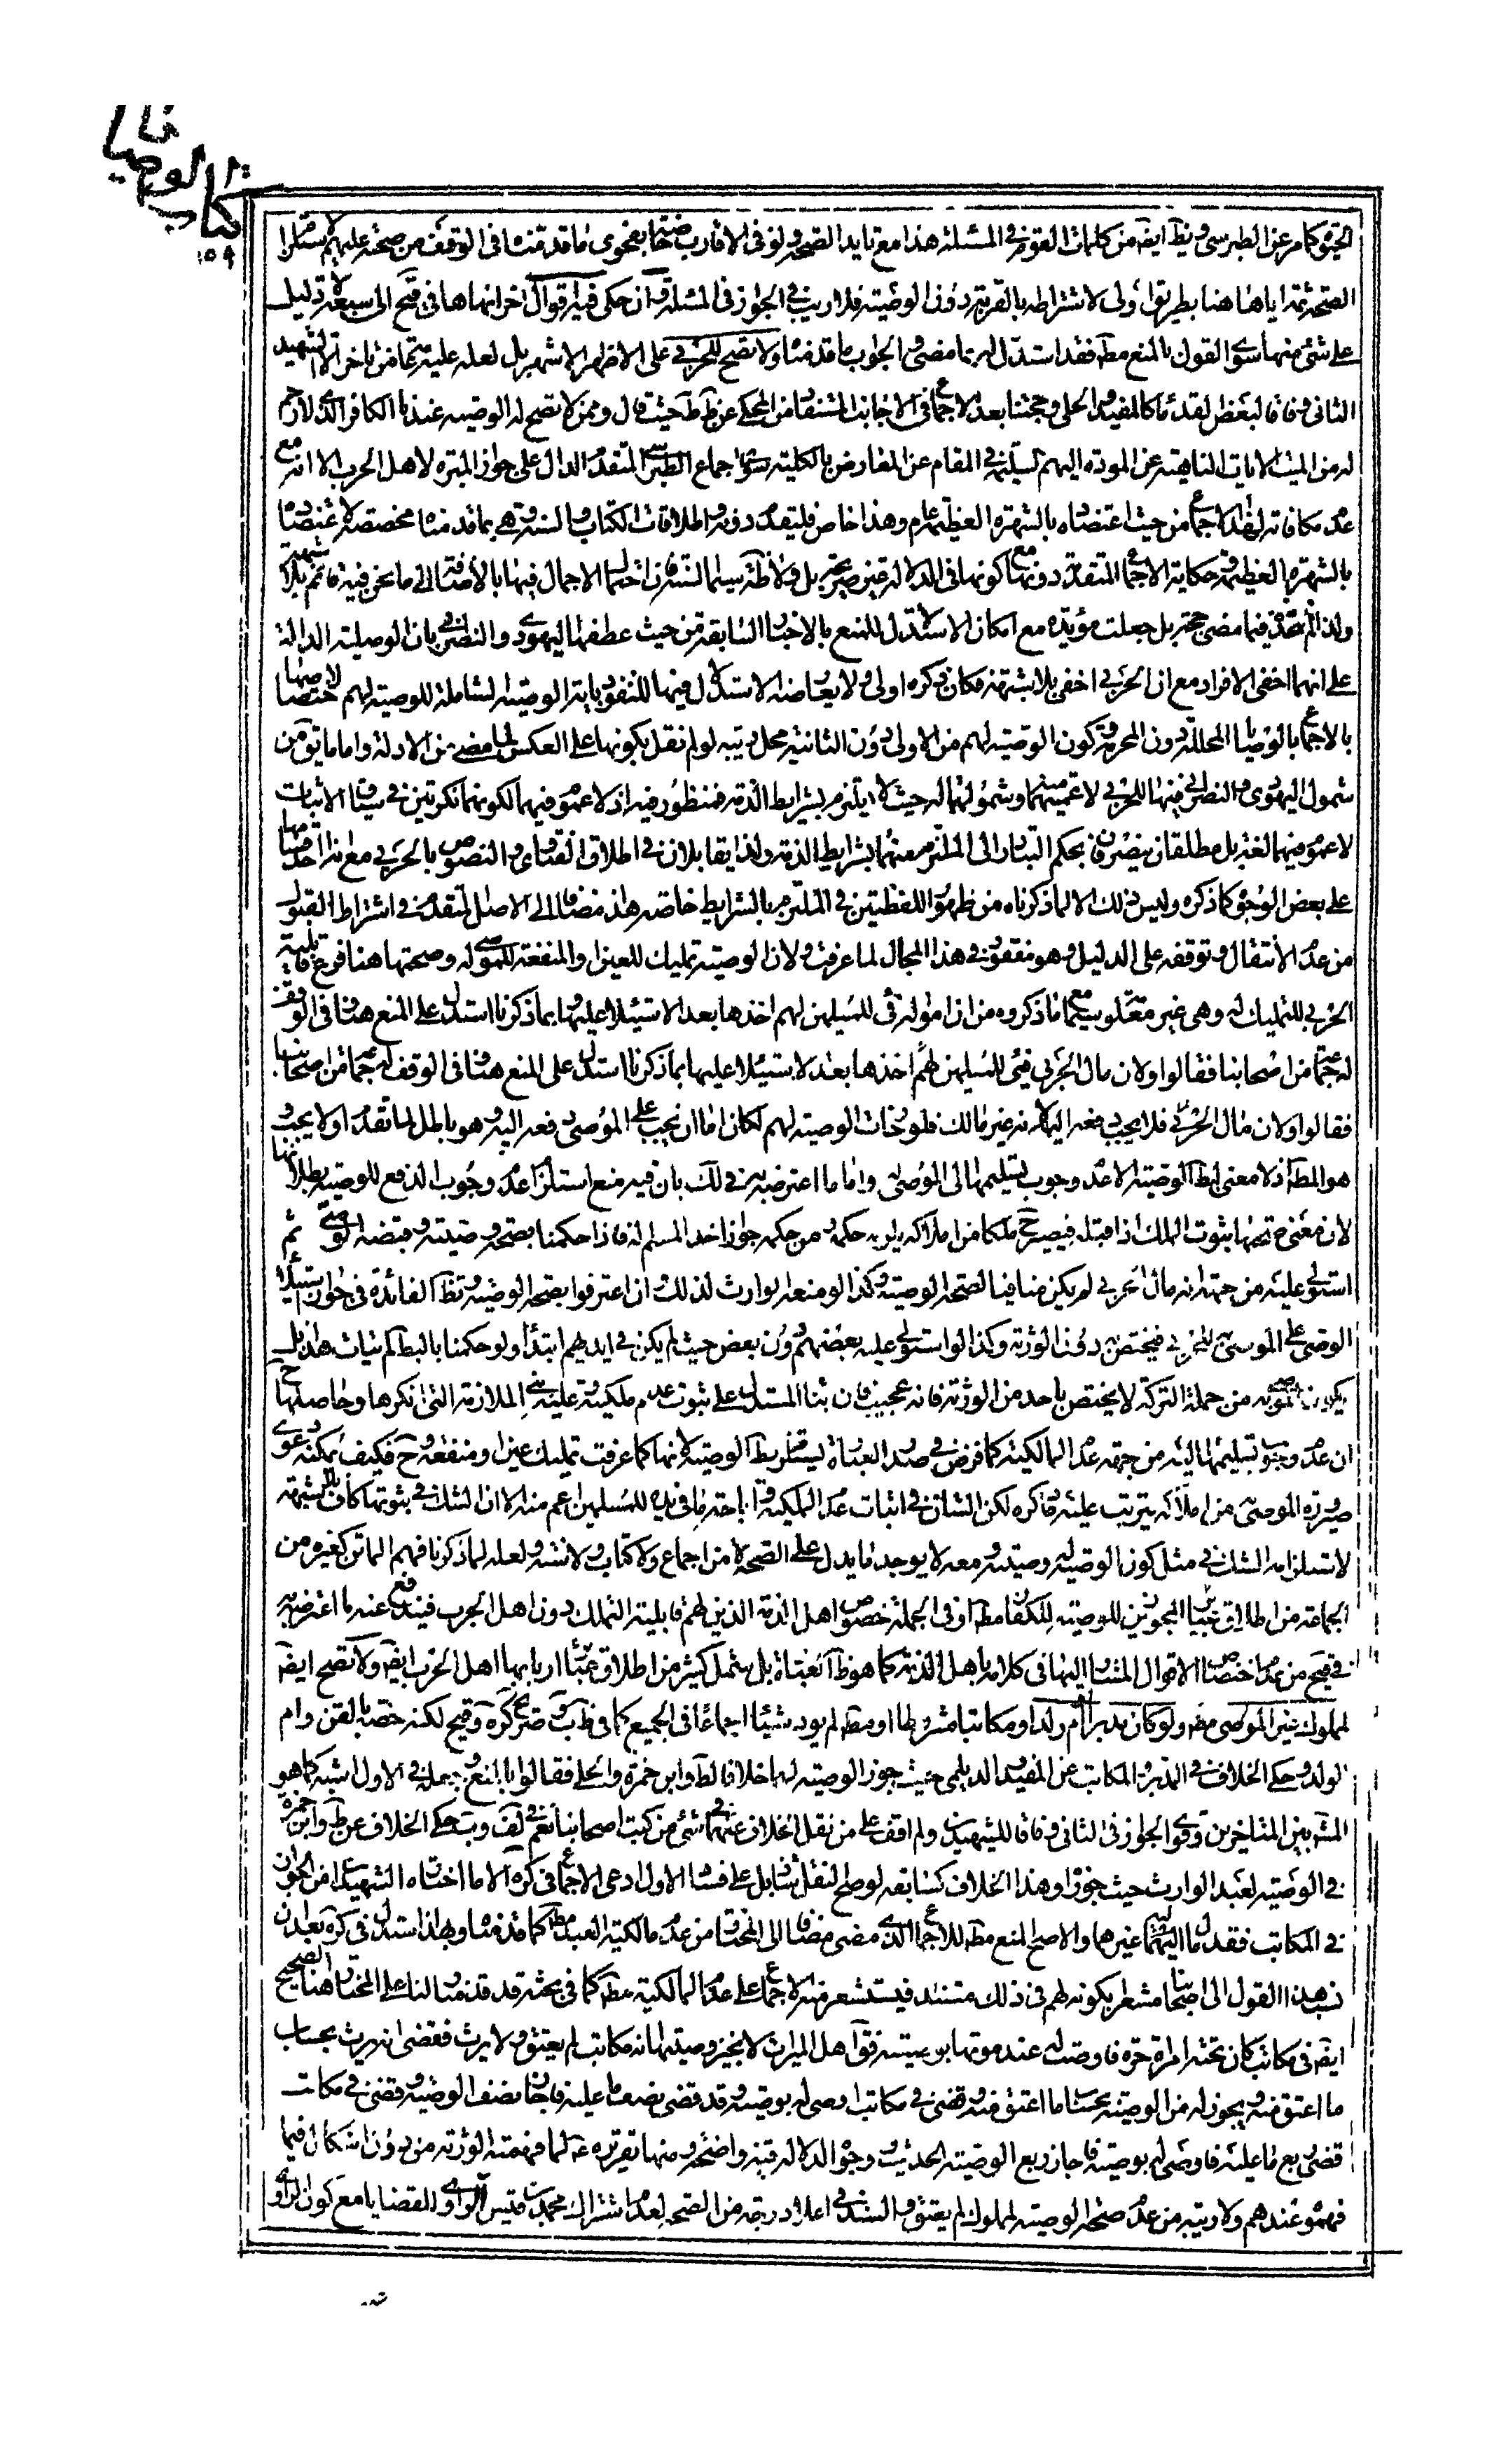 كتاب الوصايا
الحيوة كما مر عن الطبرسي ويظ ايضه من كلمات القوم في المسئلة هذا مع تايد الصحة ولو في الاقارب خاصة بفحوى ما قدمناه في الوقف من صحته عليهم لاستلزام
الصحة ثمة اياها هنا بطريق اولى لاشتراطه بالقربة دون الوصية فلا ريب في الجواز في المسئلة وان حكى فيه اقوال اخر انهاها في قيح الى سبعة لا دليل
على شئ منها سوى القول بالمنع مطه فقد استدل له بما مضى والجواب ما قدمناه ولا تصح للحربي على الاظهر الاشهر بل لعله عليه عامة من تاخر الا الشهيد
الثاني وفاقا لبعض القدماء كالمفيد والحلي وحجتنا بعد الاجماع في الاجانب المستفاد من المحكي عن ظ ط حيث قال وممن لا تصح له الوصية عندنا الكافر الذي لا رحم
له من الميت الايات الناهية عن المودة اليهم السليمة في المقام عن المعارض بالكلية سوى اجماع الطبرسي المتقدم الدال على جواز المبرة لاهل الحرب الا انه مع
عدم مكافاته لهذا الاجماع من حيث اعتضاده بالشهرة العظيمة عام وهذا خاص فليقدم دونه واطلاقات الكتاب والسنة وهي بما قدمناه مخصصة لاعتضاده
بالشهرة العظيمة وحكاية الاجماع المتقدمة دونها مع كونها في الدلالة غير صريحة بل ولا ظاهرة سيما السنة لاحتمال الاجمال فيها بالاضافة الى ما نحن فيه قائم بلا شبهة
ولذا لم نتخذها فيما مضى حجة بل جعلت مؤيدة مع امكان الاستدلال للمنع بالاخبار السابقة من حيث عطفها اليهودي والنصراني بان الوصلية الدالة
على انهما اخفى الافراد مع ان الحربي اخفى بلا شبهة فكان ذكره اولى ولا يعارضه الاستدلال فيها للنفوذ باية الوصية الشاملة للوصية لهم لاختصاصها
بالاجماع بالوصايا المحللة دون المحرمة وكون الوصية لهم من الاولى دون الثانية محل ريبة لو لم نقل بكونها على العكس لما مضى من الادلة واما ما يق من
شمول اليهودي والنصراني فيها للحربي لاعميتهما وشمولهما له حيث لا يلتزم بشرايط الذمة فمنظور فيه اذ لا عموم فيهما لكونهما نكرتين في سياق الاثبات
لا عموم فيهما لغة بل مطلقان ينصرفان بحكم التبادر الى الملتزم منهما بشرايط الذمة ولذا يقابلان في اطلاق الفتاوى والنصوص بالحربي مع انه احد منهما
على بعض الوجوه كما ذكره وليس ذلك الا لما ذكرناه من ظهور اللفظتين في الملتزم بالشرايط خاصة هذا مضافا الى الاصل المتقدم في اشتراط القبول
من عدم الانتقال وتوقفه على الدليل وهو مفقود في هذا المجال لما عرفت ولان الوصية تمليك للعين او المنفعة للموصى له وصحتها هنا فرع قابلية
الحربي للتمليك له وهي غير معلومة سيما مع ما ذكروه من ان امواله فئ للمسلمين لهم اخذها بعد الاستيلاء عليها وبما ذكرنا استدل على المنع هنا وفي الوقف
له جماعة من اصحابنا فقالوا ولان مال الحربي فئ للمسلمين لهم اخذها بعد الاستيلاء عليها بما ذكرنا استدل على المنع هنا وفي الوقف له جماعة من اصحابنا
فقالوا ولان مال الحربي فلا يجب دفعه اليه لانه غير مالك فلو جازت الوصية لهم لكان اما ان يجب على الموصى دفعه اليه وهو باطل لما تقدم او لا يجب و
هو المط اذ لا معنى لبط الوصية الا عدم وجوب تسليمها الى الموصى له واما ما اعترض به في لك بان فيه منع استلزام عدم وجوب الدفع للوصية بطلانها
لان معنى صحتها ثبوت الملك اذا قبله فيصير ح ملكا من املاكه يلزمه حكمه ومن حكمه جواز اخذ المسلم له فاذا حكمنا بصحة وصيته وقبضه الوصي ثم
استولى عليه من جهة انه مال حربي لم يكن منافيا لصحة الوصية وكذا لو منعه الوارث لذلك وان اعترفوا بصحة الوصية وتظهر الفائدة في جواز استيلاء
الوصي على الموصى به للحربي فيختص به دون الورثة وكذا لو استولى عليه بعضهم دون بعض حيث لم يكن في ايديهم ابتداء ولو حكمنا بالبطلان لم يتات هذا بل
يكون الموصى به من جملة التركة لا يختص باحد من الورثة فانه عجيب فان بناء المستدل على ثبوت عدم ملكيته وعليته في الملازمة التي انكرها وحاصلها ح
ان عدم وجوب تسليمها اليه من جهة عدم المالكية كما فرض في صدر العبارة يستلزم بط الوصية لانها كما عرفت تمليك عين او منفعة وح فكيف يمكنه دعوى
صيرورة الموصى من املاكه يترتب عليه ما ذكره لكن الشان في اثبات عدم الملكية واباحة ما في يده للمسلمين اعم منه الا ان الشك في ثبوتها كاف بلا شبهة
لاستلزامه الشك في مثل كون الوصية له وصية ومعه لا يوجد ما يدل على الصحة لا من اجماع ولا كتاب ولا سنة ولعله لما ذكرنا فهم الماتن كغيره من
الجماعة من اطلاق عبائر المجوزين للوصية للكفار مطه او في الجملة خصوص اهل الذمة الذين لهم قابلية التملك دون اهل الحرب فيندفع عنه ما اعترض به
في قيح من عدم اختصاص الاقوال المشار اليها في كلامه باهل الذمة كما هو ظاهر العبارة بل يشمل كثير من اطلاق عبائر اربابها اهل الحرب ايضه ولا تصح ايضه
لمملوك غير الموصى مطه ولو كان مدبرا او ام ولد او مكاتبا مشروطا او مطه لم يود شيئا اجماعا في الجميع كما في ظ ب وصريح كره وقيح لكنه خصه بالقن وام
الولد وحكى الخلاف في المدبر والمكاتب عن المفيد والديلمي حيث جوز الوصية لهما خلافا لط وابن حمزة والحلي فقالوا بالمنع وجعله في الاول اشبه كما هو
المشه بين المتاخرين وقوى الجواز في الثاني وفاقا للشهيدين ولم اقف على من نقل الخلاف عنهما في شئ من كتب اصحابنا نعم في لف وب حكى الخلاف عن ط وابن حمزة
في الوصية لعبد الوارث حيث جوزاه وهذا الخلاف كسابقه لو صح النقل شاذ بل على فساد الاول ادعى الاجماع في كره الا ما اختاره الشهيدان من الجواز
في المكاتب فقد مال اليهما جماعة غيرهما والاصح المنع مطه للاجماع الذي مضى مضافا الى المختار من عدم مالكية العبد مطه كما قدمناه وبهذا استدل في كره بعد ان
نسب هذا القول الى اصحابنا مشعرا بكونه لهم في ذلك مستند فيستشعر منه الاجماع على عدم المالكية مطه كما في بحثه قد قدمناه لنا على المختار هنا الصحيح
ايضه في مكاتب كان تحته امراة حرة فاوصت له عند موتها بوصية فقال اهل الميراث لا نجيز وصيتها انه مكاتب لم يعتق ولا يرث فقضى انه يرث بحساب
ما اعتق منه ويجوز له من الوصية بحساب ما اعتق منه وقضى في مكاتب اوصى له بوصية وقد قضى نصف ما عليه فاجاز نصف الوصية وقضى في مكاتب
قضى ربع ما عليه فاوصى له بوصية فاجاز ربع الوصية الحديث ووجوه الدلالة فيه واضحة ومنها تقريره ع لما فهمته الورثة من دون اشكال فيما
فهموه عندهم ولا ريبة من عدم صحة الوصية لمملوك لم يعتق والسند في اعلا درجة من الصحة لعدم اشتراك محمد بن قيس الراوي للقضايا مع كون الراوي